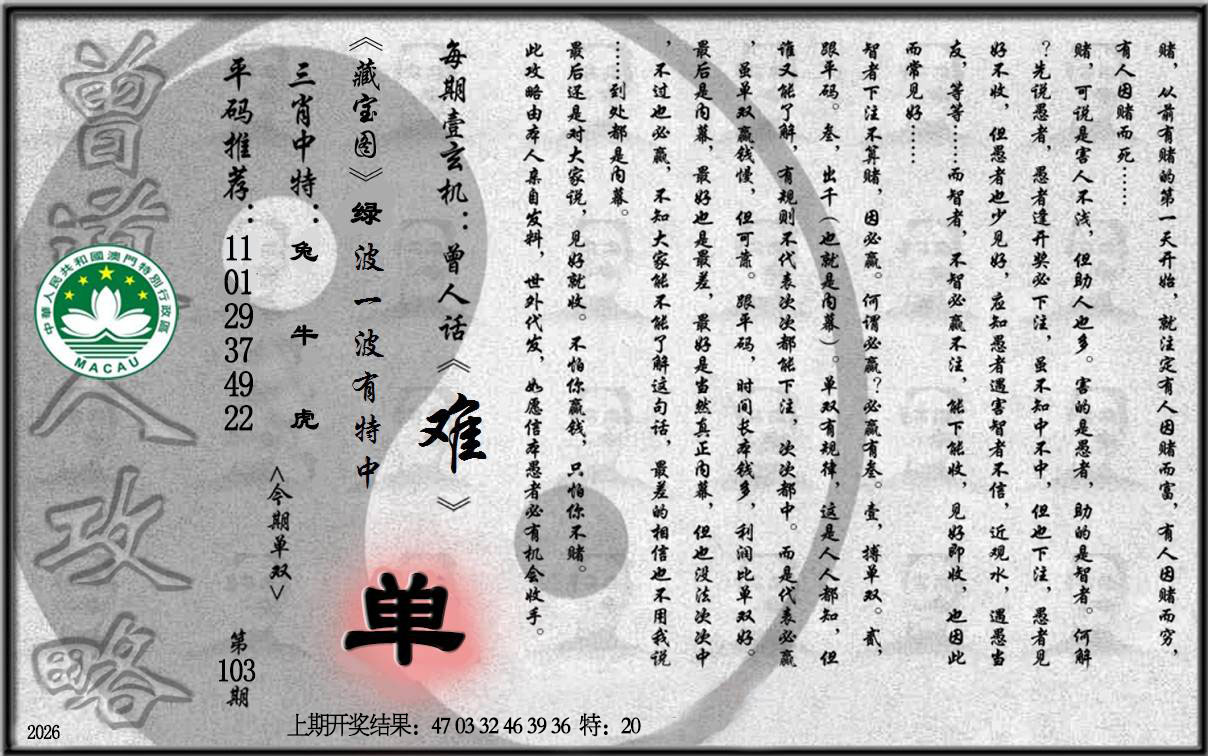 赌，从前有赌的第一天开始，就注定有人因赌而富，有人因赌而穷，
有人因赌而死……
赌，可说是害人不浅，但助人也多。害的是愚者，助的是智者。何解
？先说愚者，愚者逢开奖必下注，虽不知中不中，但也下注，愚者见
好不收，但愚者也少见好，应知愚者遇害智者不信，近观水，遇愚当
友，等等……而智者，不智必赢不注，能下能收，见好即收，也因此
而常见好……
智者下注不算赌，因必赢。何谓必赢？必赢有叁。壹，搏单双。贰，
跟平码。叁，出千（也就是内幕）。单双有规律，这是人人都知，但
谁又能了解，有规则不代表次次都能下注，次次都中。而是代表必赢
，虽单双赢钱慢，但可靠。跟平码，时间长本钱多，利润比单双好。
最后是内幕，最好也是最差，最好是当然真正内幕，但也没法次次中
，不过也必赢，不知大家能不能了解这句话，最差的相信也不用我说
……到处都是内幕。
最后还是对大家说，见好就收。不怕你赢钱，只怕你不赌。
此攻略由本人亲自发料，世外代发，如愿信本愚者必有机会收手。
每期壹玄机：曾人话《难》
《藏宝图》绿波一波有特中
三肖中特：兔 牛 虎
平码推荐：11 01 29 37 49 22
<今期单双>
单
第103期
曾道人攻略
中華人民共和國澳門特別行政區
MACAU
上期开奖结果：47 03 32 46 39 36 特：20
2026